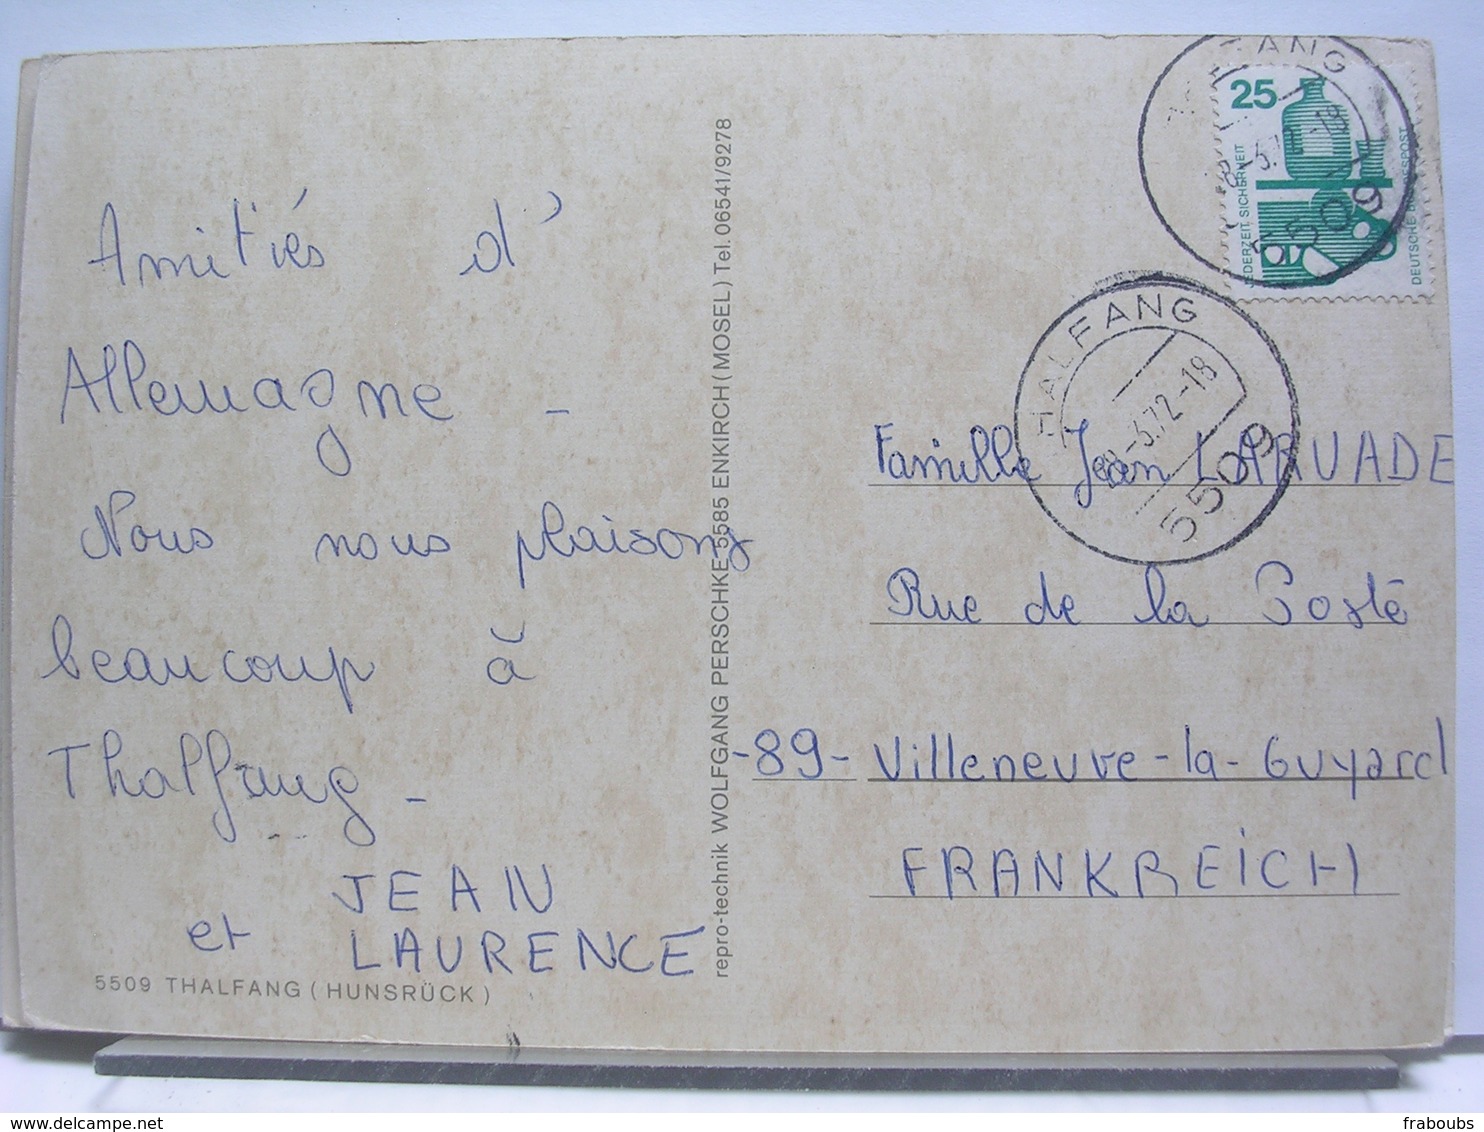 Amitiés d'
Allemagne -
Nous nous plaisons
beaucoup à
Thalfang -
JEAN
et LAURENCE
5509 THALFANG (HUNSRÜCK)
repro-technik WOLFGANG PERSCHKE 5585 ENKIRCH (MOSEL) Tel. 06541/9278
25
JEDERZEIT SICHERHEIT
DEUTSCHE
5509
THALFANG
-3.72-18
5509
Famille Jean LARUADE
Rue de la Poste
-89- Villeneuve-la-Guyard
FRANKREICH
www.delcampe.net
fraboubs